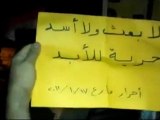 لا بعث ولا أسد
حرية للأبد
أحرار مارع